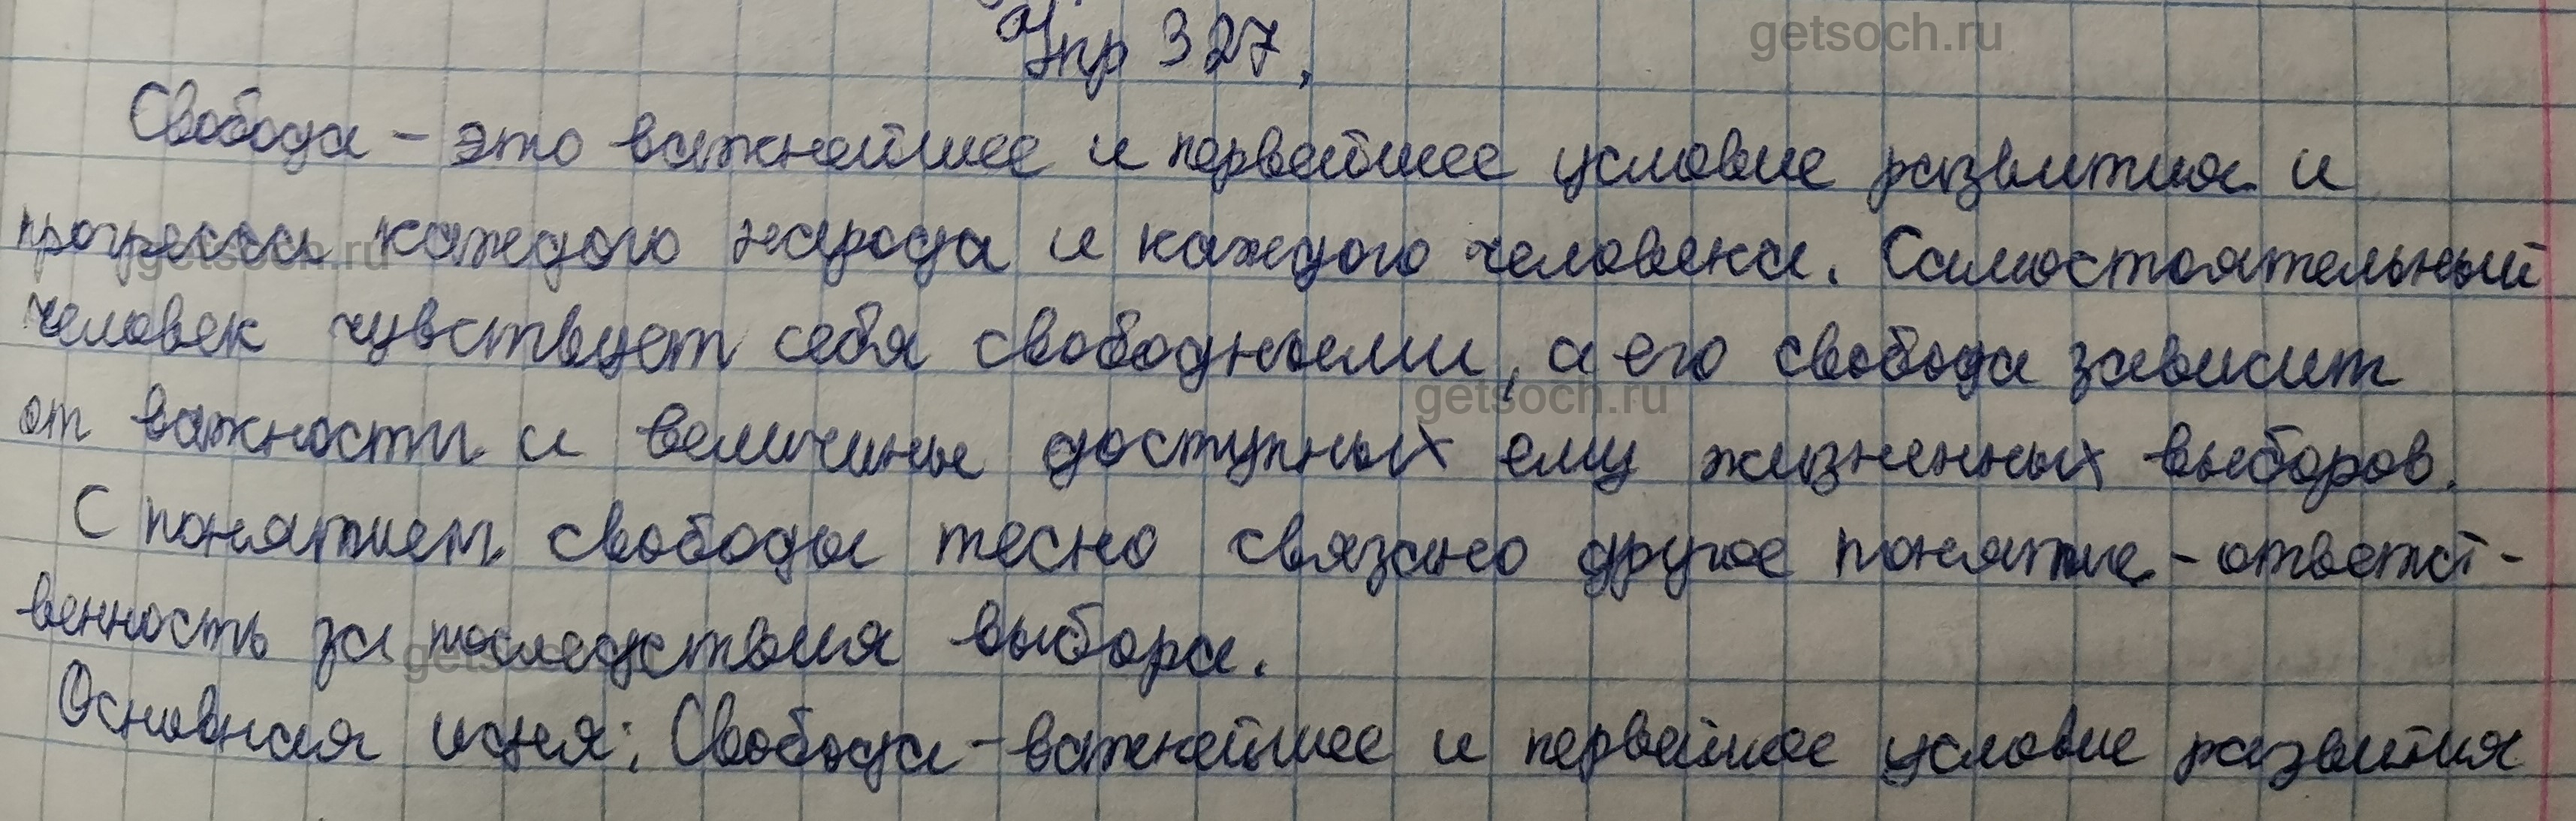 Упр 327.
getsoch.ru
Свобода - это важнейшее и первейшее условие развития и
прогресса каждого народа и каждого человека. Самостоятельный
getsoch.ru
человек чувствует себя свободным, а его свобода зависит
getsoch.ru
от важности и величины доступных ему жизненных выборов.
С понятием свободы тесно связано другое понятие - ответст-
венность за последствия выбора.
getsoch.ru
Основная идея: Свобода - важнейшее и первейшее условие развития